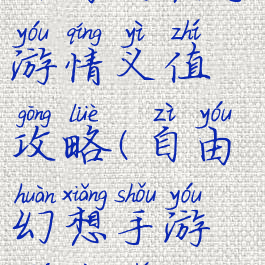 yóu qíng yì zhí
游情义值
gōng lüè zì yóu
攻略(自由
huàn xiǎng shǒu yóu
幻想手游